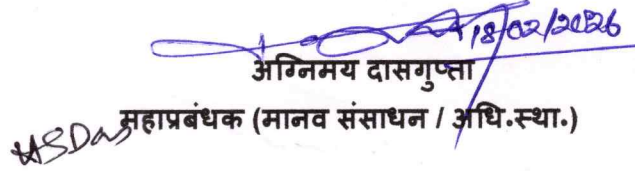 18/02/2026
अग्निमय दासगुप्ता
महाप्रबंधक (मानव संसाधन / अधि.स्था.)